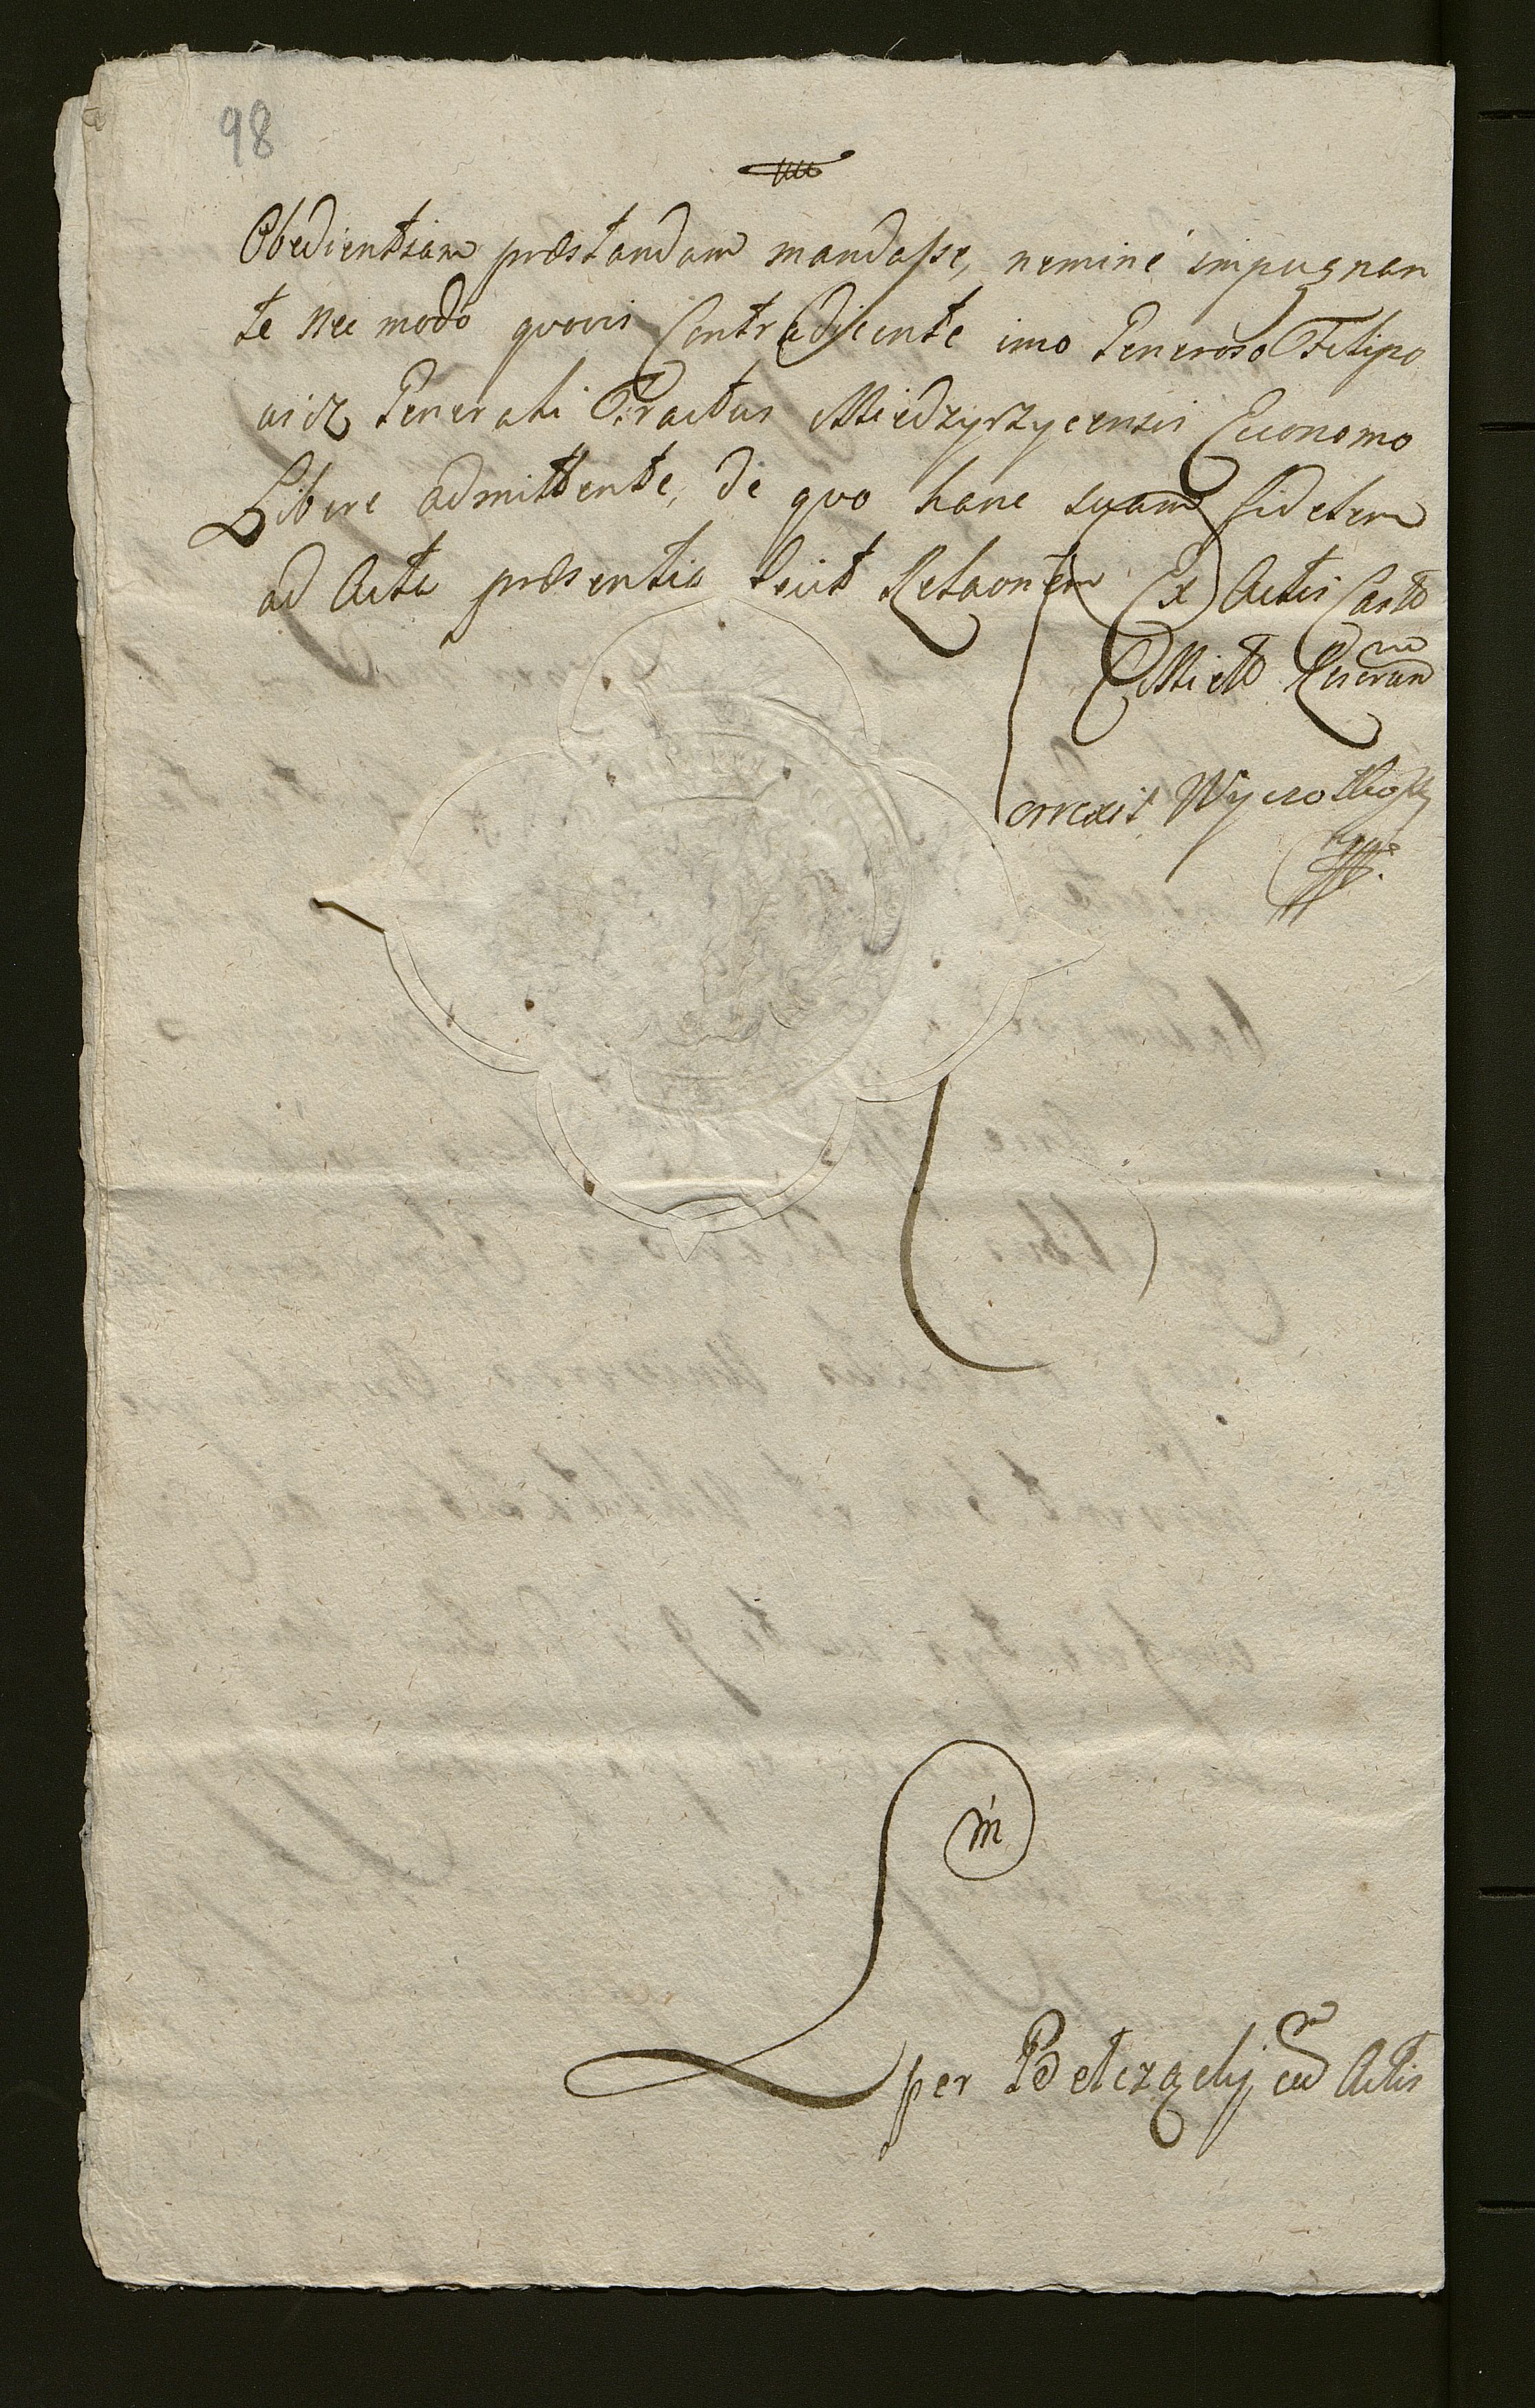 98
Obedientiam præstandam mandasse, nemine impugnan
te nec modo quovis Contradicente imo Generoso Filipo
wicz Generali Tractus Miedzyrzycensis Economo
Libere admittente, de quo hanc suam fidelem
ad Acta præsentia fecit Relaonem Ex Actis Castr
Miel
Correxit
m
per Bełcząckj cu Actis